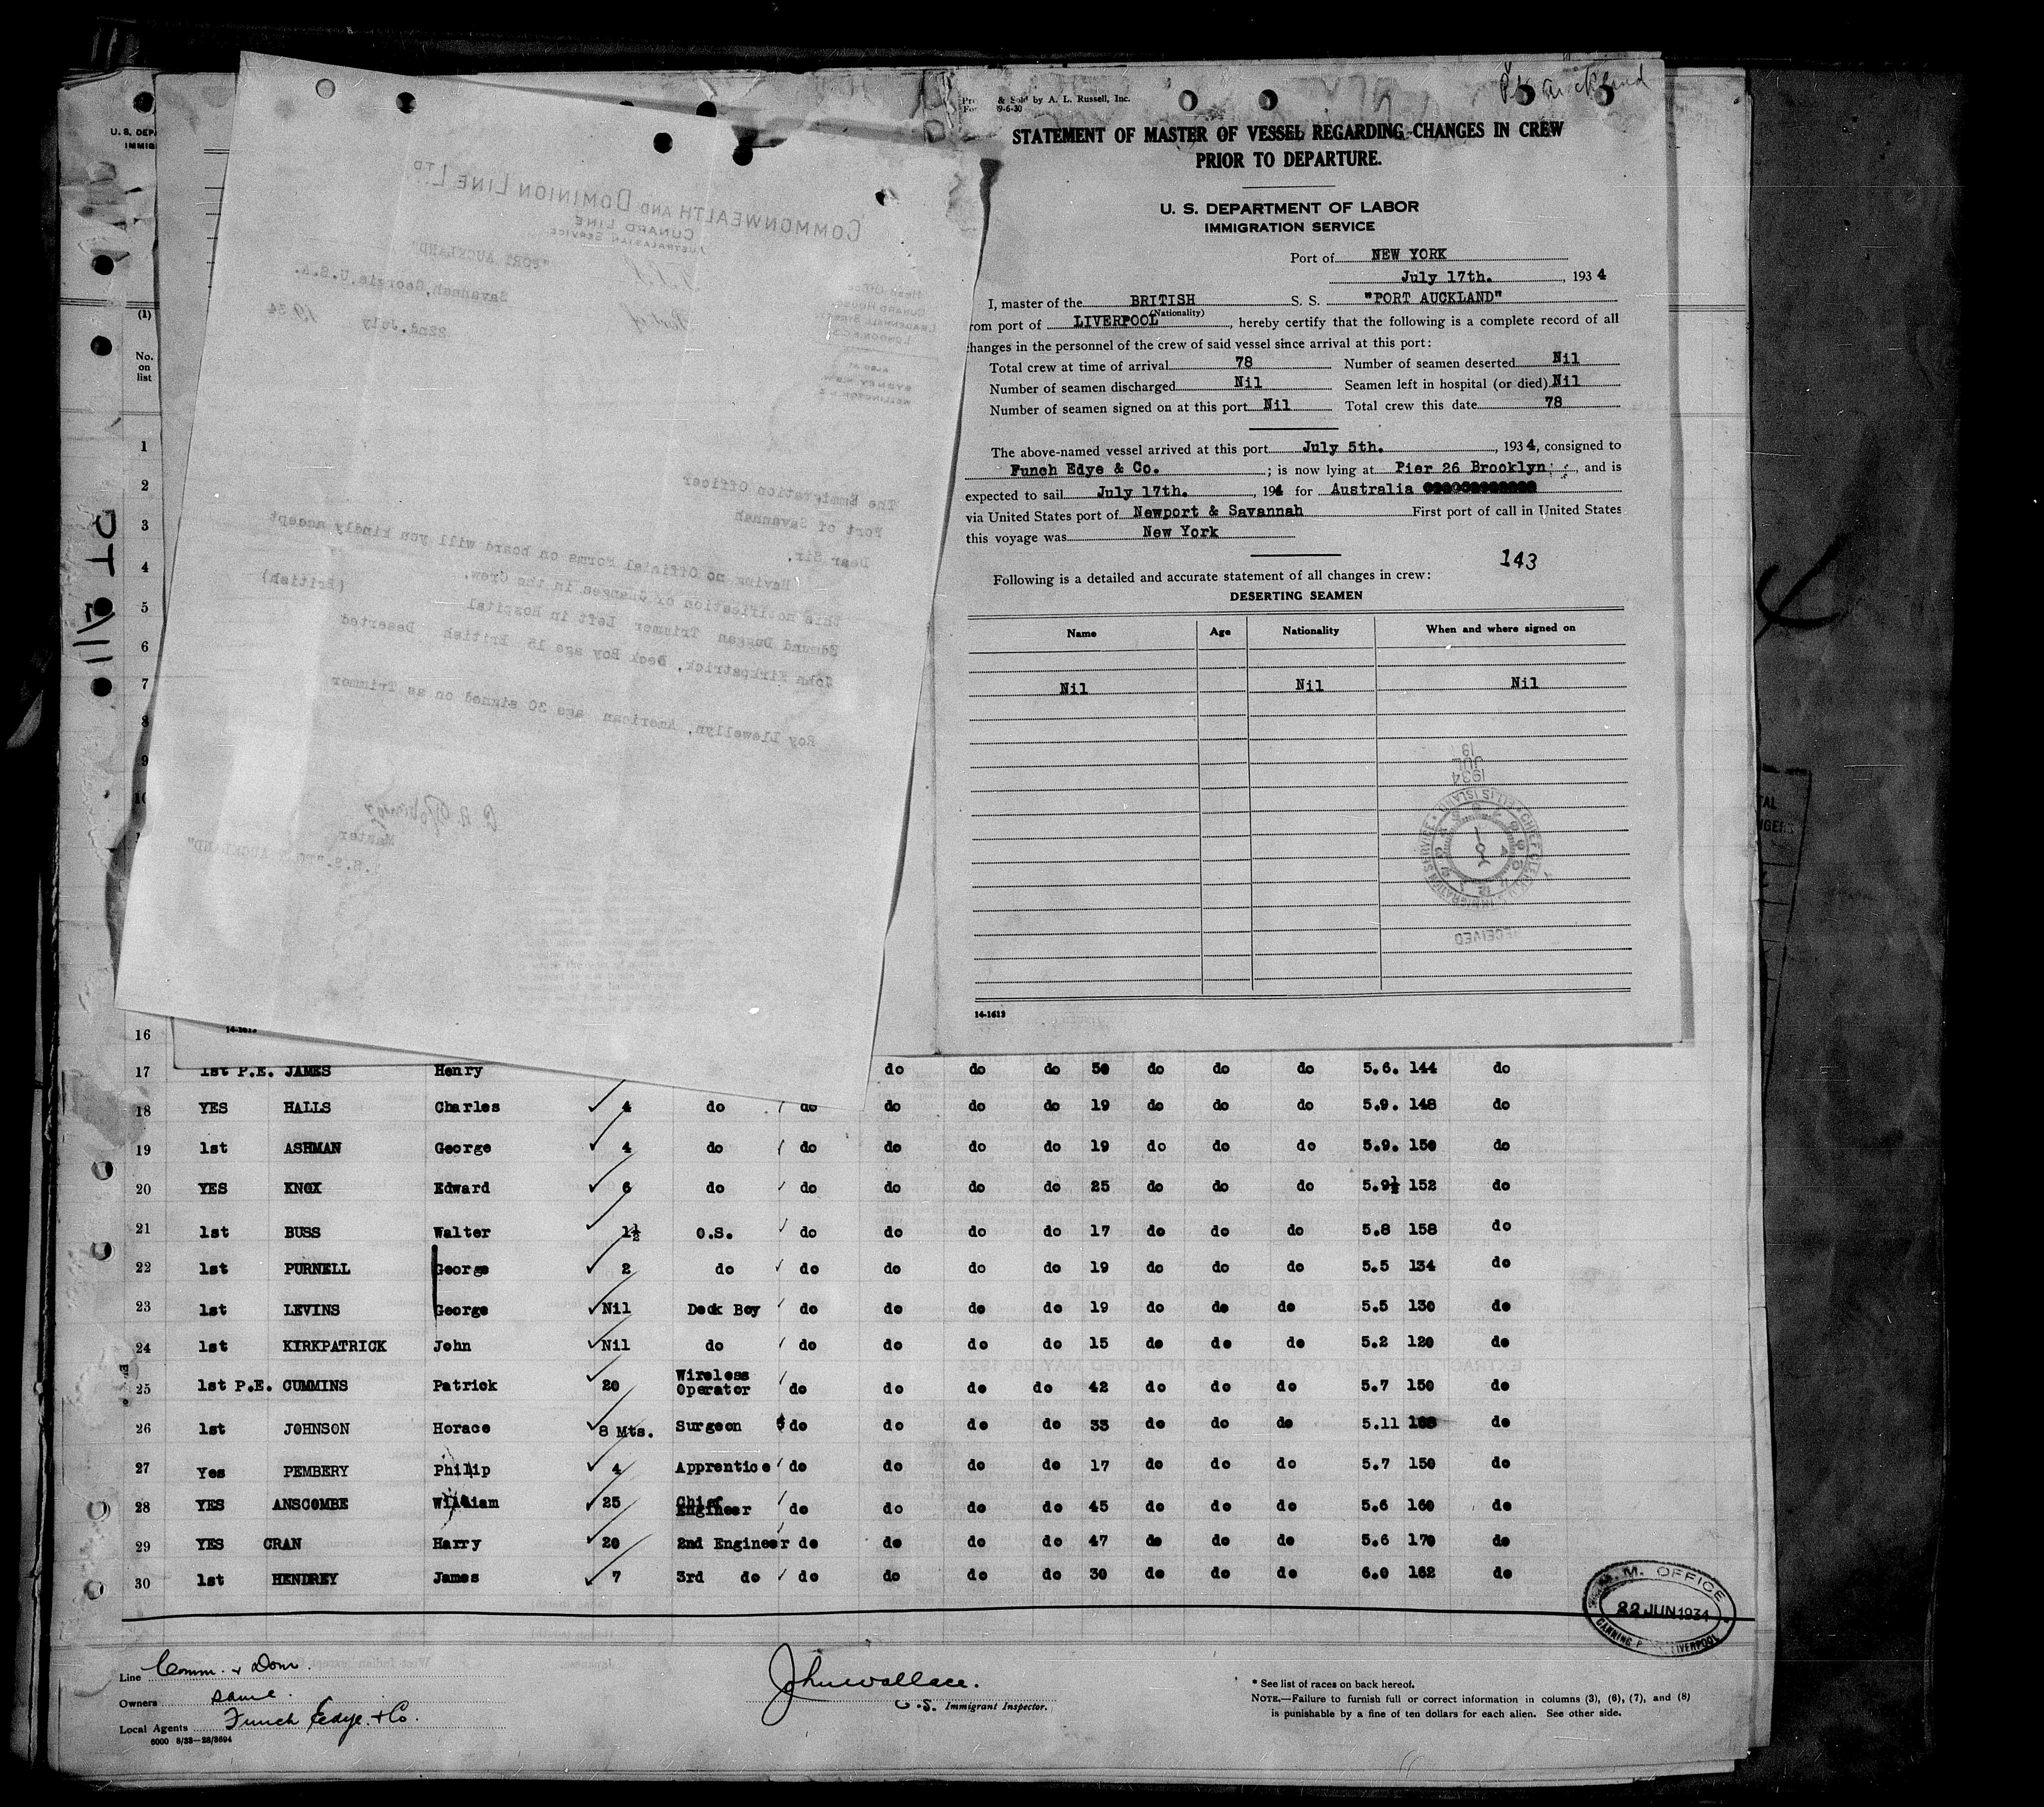 Pt Auckland
& Sold by A. L. Russell, Inc.
9-6-30
STATEMENT OF MASTER OF VESSEL REGARDING CHANGES IN CREW
PRIOR TO DEPARTURE.
U. S. DEPARTMENT OF LABOR
IMMIGRATION SERVICE
Port of NEW YORK
July 17th. , 1934
I, master of the BRITISH S. S. "PORT AUCKLAND"
(Nationality)
rom port of LIVERPOOL , hereby certify that the following is a complete record of all
changes in the personnel of the crew of said vessel since arrival at this port:
Total crew at time of arrival 78 Number of seamen deserted Nil
Number of seamen discharged Nil Seamen left in hospital (or died) Nil
Number of seamen signed on at this port Nil Total crew this date 78
The above-named vessel arrived at this port July 5th. , 1934, consigned to
Funch Edye & Co. ; is now lying at Pier 26 Brooklyn , and is
expected to sail July 17th. , 194 for Australia
via United States port of Newport & Savannah First port of call in United States
this voyage was New York
143
Following is a detailed and accurate statement of all changes in crew:
DESERTING SEAMEN
Name Age Nationality When and where signed on
Nil Nil Nil
1934
JUL
19
CHIEF CLERK U.S. IMMIGRATION SERVICE ELLIS ISLAND
RECEIVED
14-1613
COMMONWEALTH AND DOMINION LINE LTD
CUNARD LINE
AUSTRALASIAN SERVICE
S.S. "PORT AUCKLAND"
Head Office
CUNARD HOUSE
LEADENHALL STREET
LONDON
ALSO AT
SYDNEY N.S.W.
WELLINGTON N.Z.
Port of Savannah, Georgia, U.S.A.
22nd. July 1934
The Emmigration Officer
Port of Savannah
Dear Sir,
Having no Official Forms on board will you kindly accept
this notification of Changes in the Crew.
Edmund Duggan Trimmer Left in Hospital (British)
John Kirkpatrick, Deck Boy age 15 British Deserted
Roy Llewellyn, American age 30 signed on as Trimmer
Master
S.S. "PORT AUCKLAND"
U. S. DEPA
IMMIG
(1)
No.
on
list
1
2
3
4
5
6
7
8
9
10
16
14-1613
17 1st P.E. JAMES Henry do do do 50 do do do 5.6. 144 do
18 YES HALLS Charles 4 do do do do do 19 do do do 5.9. 148 do
19 1st ASHMAN George 4 do do do do do 19 do do do 5.9. 150 do
20 YES KNOX Edward 6 do do do do do 25 do do do 5.9½ 152 do
21 1st BUSS Walter 1½ O.S. do do do do 17 do do do 5.8 158 do
22 1st PURNELL George 2 do do do do do 19 do do do 5.5 134 do
23 1st LEVINS George Nil Deck Boy do do do do 19 do do do 5.5 130 do
24 1st KIRKPATRICK John Nil do do do do do 15 do do do 5.2 120 do
25 1st P.E. CUMMINS Patrick 20 Wireless Operator do do do do 42 do do do 5.7 150 do
26 1st JOHNSON Horace 8 Mts. Surgeon do do do do 33 do do do 5.11 do
27 Yes PEMBERY Philip 4 Apprentice do do do do 17 do do do 5.7 150 do
28 YES ANSCOMBE William 25 Chief Engineer do do do do 45 do do do 5.6 160 do
29 YES CRAN Harry 20 2nd Engineer do do do do 47 do do do 5.6 170 do
30 1st HENDREY James 7 3rd do do do do do 30 do do do 6.0 162 do
M.M. OFFICE
22 JUN 1934
CANNING LIVERPOOL
Line Comm. & Dom.
Owners same.
Local Agents Funch Edye & Co.
6000 8/33—28/3694
John Wallace.
U.S. Immigrant Inspector.
* See list of races on back hereof.
NOTE.—Failure to furnish full or correct information in columns (3), (6), (7), and (8)
is punishable by a fine of ten dollars for each alien. See other side.